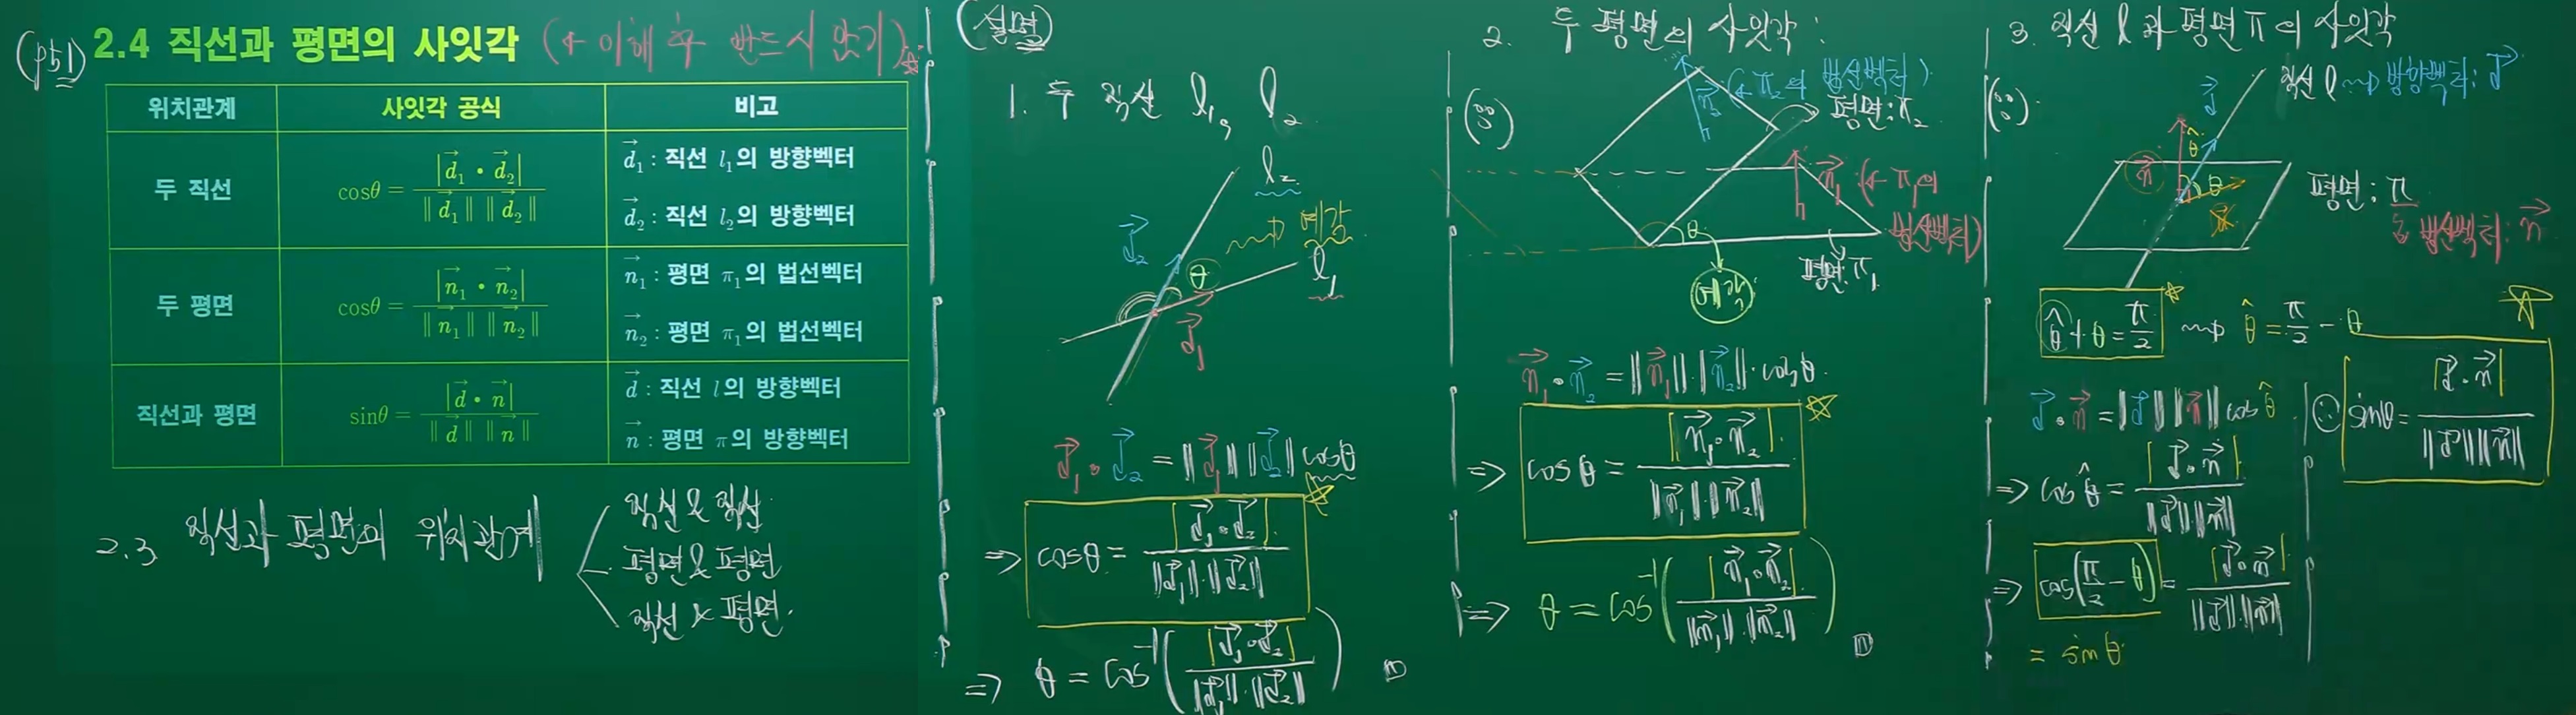 (p51) 2.4 직선과 평면의 사잇각 (← 이해 후 반드시 암기)☆
위치관계 사잇각 공식 비고
두 직선 cosθ = |d₁ • d₂| / ‖d₁‖ ‖d₂‖
d₁ : 직선 l₁의 방향벡터
d₂ : 직선 l₂의 방향벡터
두 평면 cosθ = |n₁ • n₂| / ‖n₁‖ ‖n₂‖
n₁ : 평면 π₁의 법선벡터
n₂ : 평면 π₁의 법선벡터
직선과 평면 sinθ = |d • n| / ‖d‖ ‖n‖
d : 직선 l의 방향벡터
n : 평면 π의 방향벡터
2.3 직선과 평면의 위치관계
직선 & 직선
평면 & 평면
직선 & 평면.
(설명)
1. 두 직선 l₁, l₂
l₂
d₂
θ ⇝ 예각
l₁
d₁
d₁ • d₂ = ‖d₁‖ ‖d₂‖ cosθ
⇒ cosθ = |d₁ • d₂| / ‖d₁‖·‖d₂‖ ☆
⇒ θ = cos⁻¹(|d₁ • d₂| / ‖d₁‖·‖d₂‖)
2. 두 평면의 사잇각 :
n₂ (← π₂의 법선벡터)
평면: π₂
n₁ (← π₁의 법선벡터)
θ
예각
평면: π₁
n₁ • n₂ = ‖n₁‖·‖n₂‖·cosθ.
⇒ cosθ = |n₁ • n₂| / ‖n₁‖‖n₂‖ ☆
⇒ θ = cos⁻¹(|n₁ • n₂| / ‖n₁‖·‖n₂‖)
3. 직선 l과 평면 π의 사잇각
직선 l ⇝ 방향벡터: d
d
n
θ̂
θ
평면: π
법선벡터: n
θ̂ + θ = π/2 ☆ ⇝ θ̂ = π/2 - θ
d • n = ‖d‖‖n‖ cosθ̂
⇒ cosθ̂ = |d • n| / ‖d‖‖n‖
⇒ cos(π/2 - θ) = |d • n| / ‖d‖‖n‖
= sinθ
∴ sinθ = |d • n| / ‖d‖‖n‖ ☆